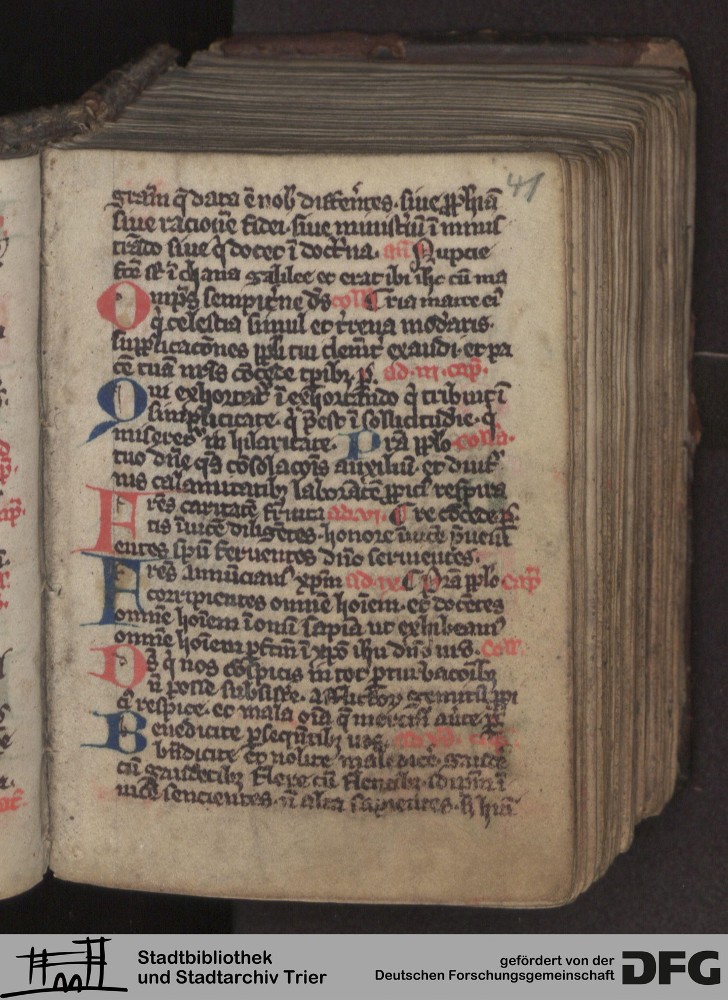 41
gram q data e nob differetes. siue pphiam
siue racione fidei. siue ministiu i minis
trado siue q docet i doctrina. an Nupcie
fce st i chana galilee et erat ibi ihc cu ma
Omps sempitne ds coll Tria marie ei
q celestia simul et trena modaris.
supplicacones ppli tui clemt exaudi. et pa
ce tua nris cocede tpibz p. ad. iii. cap.
Qui exhortat i exhortando q tribuit i
simplicitate. q pest i sollicitudie. q
miseret in hilaritate. Pra pplo colla.
tuo dne qs cosolacois auxiliu. et diut
nis calamitatibz laborate ppici respira
Fres caritate frnita ad. vi. re cocede p
tis iuice diligetes. honore iuice pueni
entes spu feruentes dno seruientes.
Fres annuciam xpm ad. ix. Pra pplo cap
corripientes omne hoiem. et docetes
omne hoiem i omi sapia ut exhibeam
omne hoiem pfcm i xpo ihu dno nro. coll.
Ds q nos cospicis in tot pturbacoibz
n posse subsiste. afflictor gemitu ppi
ci respice. et mala oia q merem aute p
Benedicite psequetibz uos. cap.
bndicite et nolite maledice. gaude
cu gaudetibz flere cu flentibz. idipm i
uice sencientes. n alta sapientes. s hui
Stadtbibliothek
und Stadtarchiv Trier
gefördert von der
Deutschen Forschungsgemeinschaft
DFG